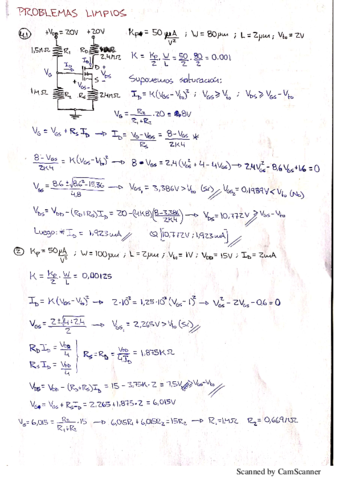 PROBLEMAS LIMPIOS
4.1 +V_DD=20V +20V Kp = 50 μA/V² ; W=80μm ; L=2μm ; V_to=2V
1.5MΩ R1 R_D 2.4KΩ K = Kp/2 · W/L = 50/2 · 80/2 = 0.001
V_G I_D D + V_DS S - + V_GS - Suponemos saturación:
1MΩ R2 R_S 2.4KΩ I_D = K(V_GS-V_to)² ; V_GS ≥ V_to ; V_DS ≥ V_GS-V_to
V_G = R2/(R1+R2) · 20 = 8V
V_G = V_GS + R_S I_D → I_D = (V_G-V_GS)/R_S = (8-V_GS)/2K4 *
(8-V_GS)/2K4 = K(V_GS-V_to)² → 8-V_GS = 2.4(V_GS²+4-4V_GS) → 2.4V_GS²-8.6V_GS+1.6=0
V_GS = (8.6±√(8.6²-15.36))/4.8 → V_GS1 = 3.386V > V_to (Sí) ; V_GS2 = 0.1989V < V_to (No)
V_DS = V_DD-(R_D+R_S)I_D = 20-(4K8)((8-3.386)/2K4) → V_DS = 10.772V ≥ V_GS-V_to
Luego: * I_D = 1.923mA Q[10.772V ; 1.923mA]
2 Kp = 50 μA/V² ; W=100μm ; L=2μm ; V_to=1V ; V_DD=15V ; I_D=2mA
K = Kp/2 · W/L = 0.00125
I_D = K(V_GS-V_to)² → 2·10⁻³ = 1.25·10⁻³(V_GS-1)² → V_GS²-2V_GS-0.6=0
V_GS = (2±√(4+2.4))/2 → V_GS1 = 2.265V > V_to (Sí)
R_D I_D = V_DD/4
R_S I_D = V_DD/4 R_S = R_D = V_DD/(4I_D) = 1.875KΩ
V_DS = V_DD-(R_D+R_S)I_D = 15-3.75K·2 = 7.5V ≥ V_GS-V_to
V_G = V_GS+R_S I_D = 2.265+1.875·2 = 6.015V
V_G = 6.015 = R2/(R1+R2) · 15 → 6.015R1+6.015R2 = 15R2 → R1=1MΩ R2=0.669MΩ
Scanned by CamScanner